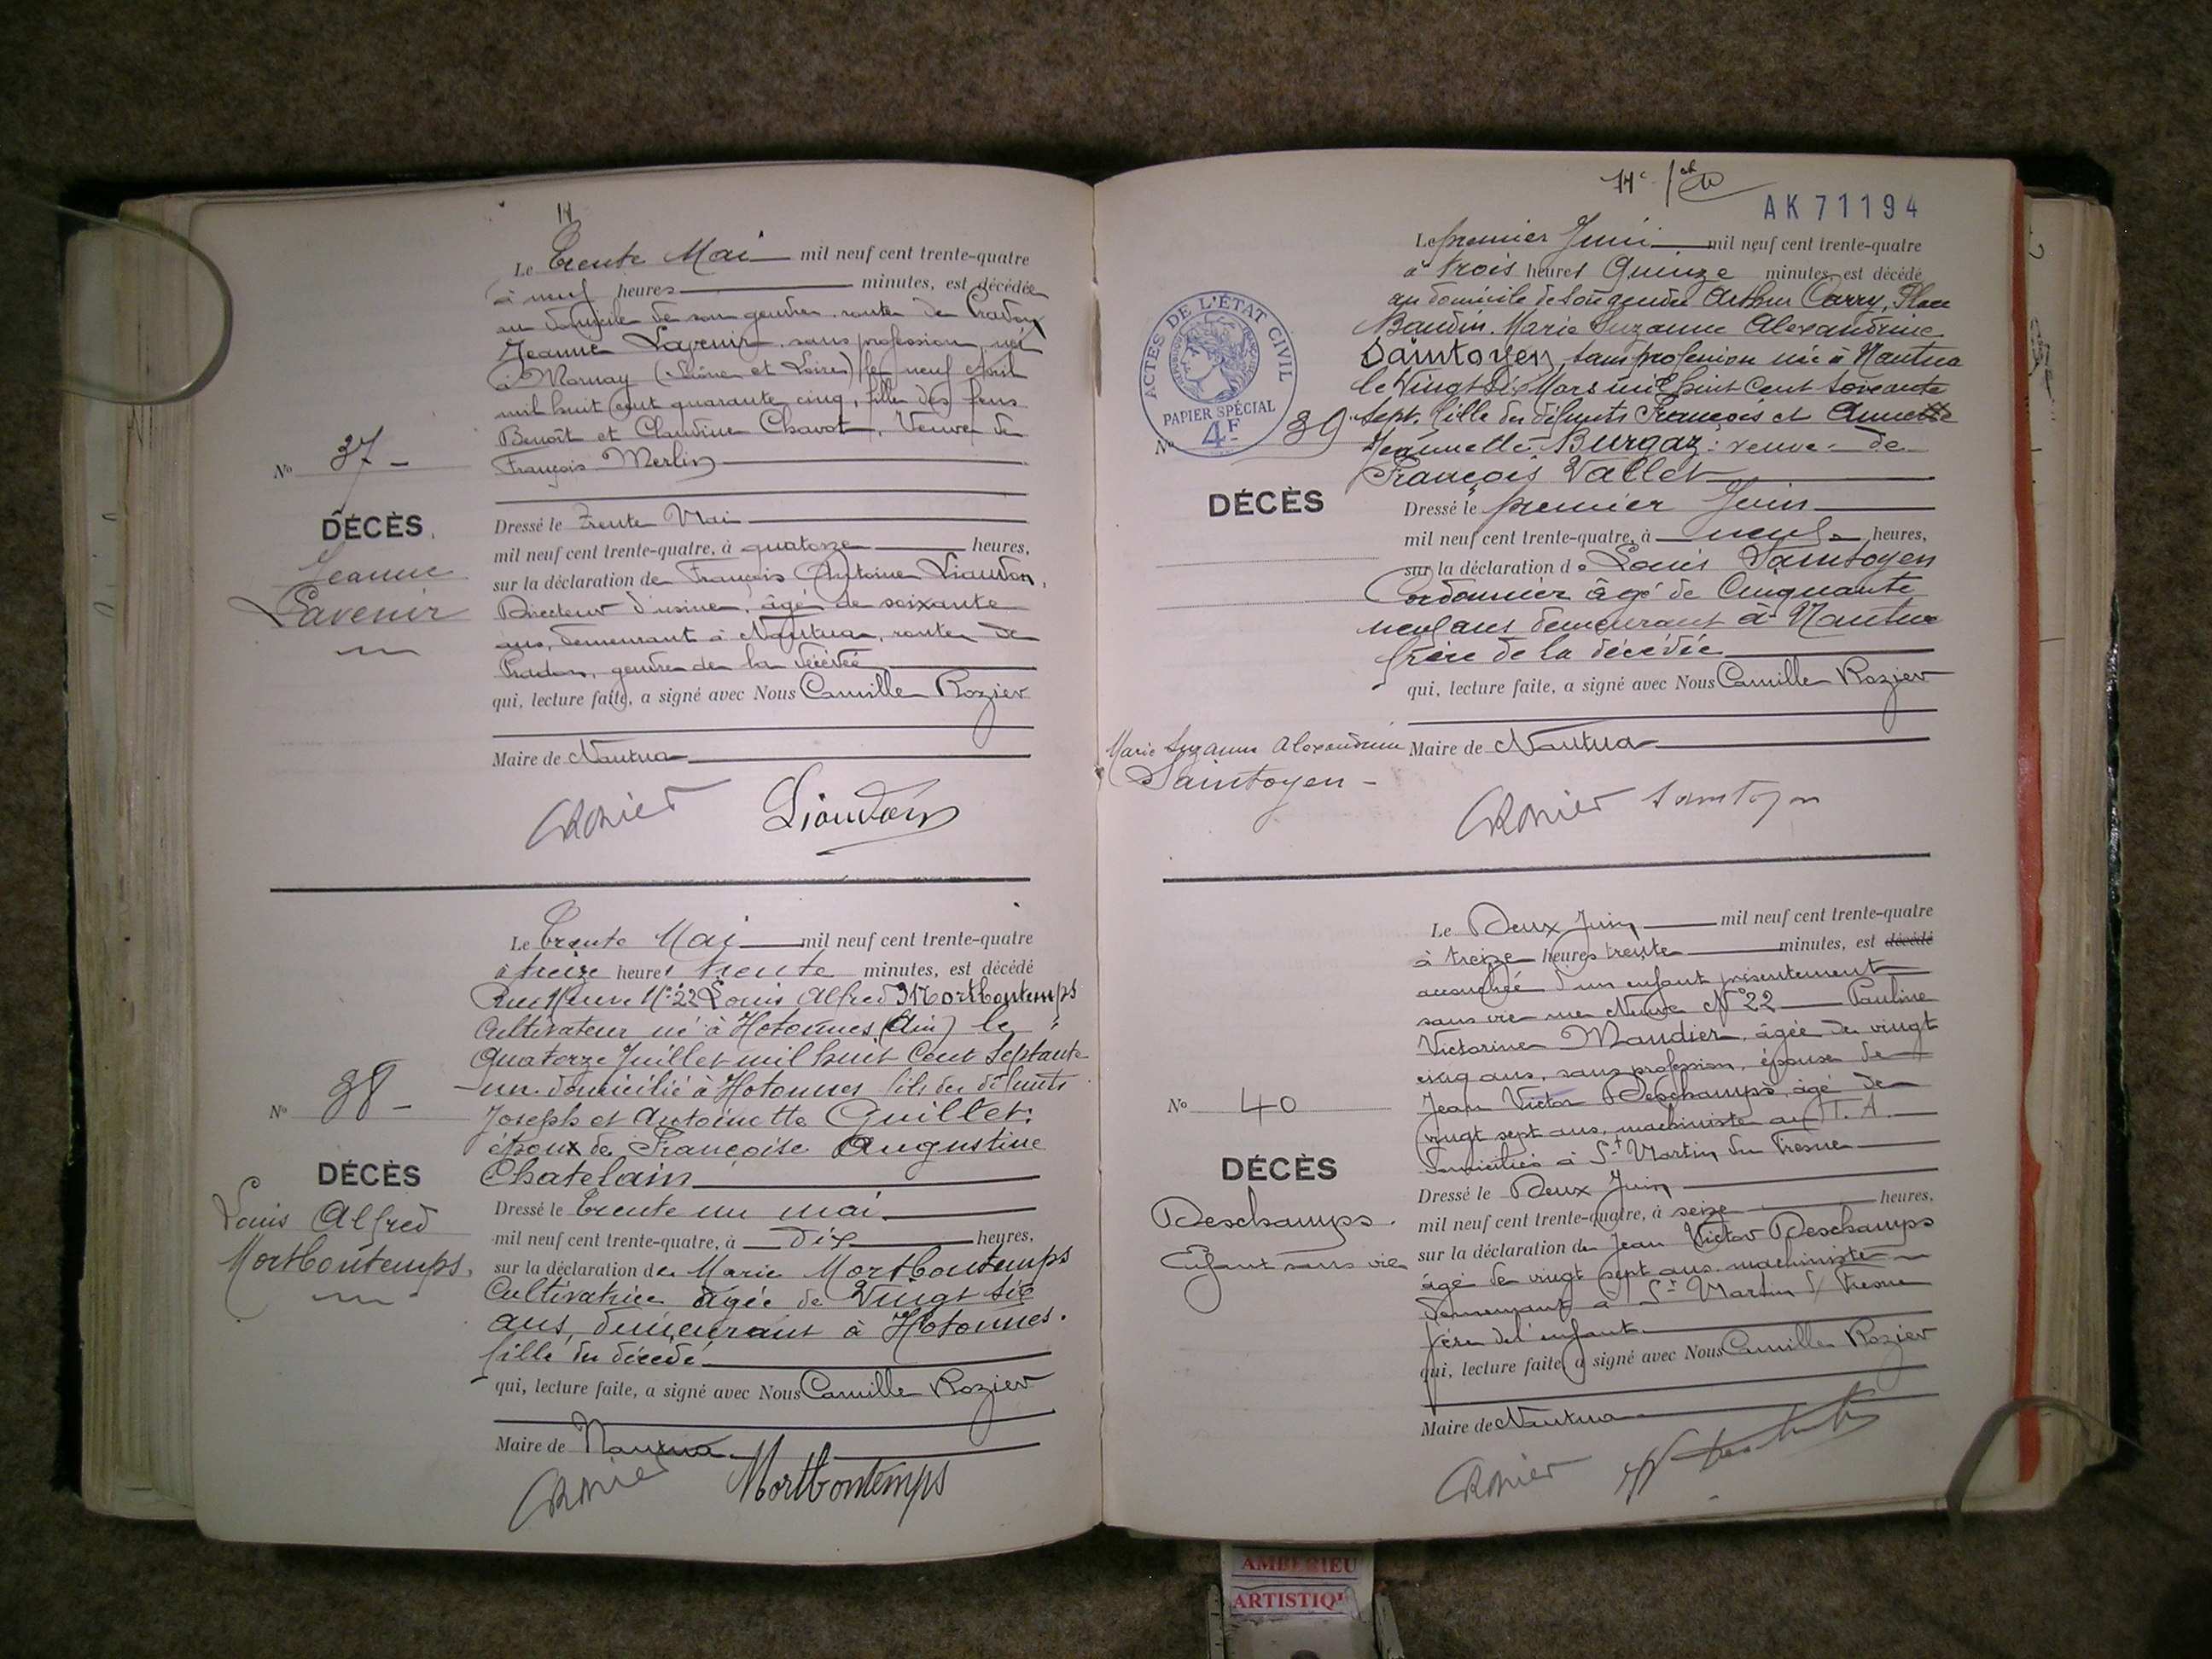 14
Le Trente Mai mil neuf cent trente-quatre
à neuf heures minutes, est décédée
au domicile de son gendre route de Pradon
Jeanne Lavenir sans profession, née
à Mornay (Saône et Loire) le neuf Avril
mil huit cent quarante cinq, fille des feus
Benoît et Claudine Chavot, Veuve de
François Merlin
No 37
DÉCÈS
Jeanne
Lavenir
Dressé le trente Mai
mil neuf cent trente-quatre, à quatorze heures,
sur la déclaration de François Antoine Liaudon,
Directeur d'usine, âgé de soixante
ans, demeurant à Nantua, route de
Pradon, gendre de la décédée
qui, lecture faite, a signé avec Nous Camille Rozier
Maire de Nantua
CRozier Liaudon
Le trente Mai mil neuf cent trente-quatre
à treize heures trente minutes, est décédé
Rue Neuve No 22 Louis Alfred Mortbontemps
Cultivateur né à Hotonnes (Ain) le
Quatorze Juillet mil huit Cent Septante
un domicilié à Hotonnes fils des défunts
Joseph et Antoinette Guillet:
époux de Françoise Augustine
Chatelain
No 38
DÉCÈS
Louis Alfred
Mortbontemps.
Dressé le trente un mai
mil neuf cent trente-quatre, à dix heures,
sur la déclaration de Marie Mortbontemps
Cultivatrice âgée de Vingt six
ans, demeurant à Hotonnes.
fille du décédé
qui, lecture faite, a signé avec Nous Camille Rozier
Maire de Nantua
CRozier Mortbontemps
AK 71194
Le premier Juin mil neuf cent trente-quatre
à trois heures Quinze minutes est décédé
au domicile de son gendre Arthur Carry, Place
Baudin. Marie Suzanne Alexandrine
Saintoyen, sans profession née à Nantua
le Vingt Mars mil huit cent soixante
Sept. fille des défunts François et
Jeannette Burgaz: veuve de
François Vallet
ACTES DE L'ÉTAT CIVIL
PAPIER SPÉCIAL
4F
No 39
DÉCÈS
Marie Suzanne Alexandrine
Saintoyen
Dressé le premier Juin
mil neuf cent trente-quatre, à neuf heures,
sur la déclaration de Louis Saintoyen
Cordonnier âgé de Cinquante
neuf ans demeurant à Nantua
frère de la décédée
qui, lecture faite, a signé avec Nous Camille Rozier
Maire de Nantua
CRozier Saintoyen
Le Deux Juin mil neuf cent trente-quatre
à treize heures trente minutes, est décédé
accouchée d'un enfant présentement
sans vie rue Neuve No 22 Pauline
Victorine Mandier, âgée de vingt
cinq ans, sans profession, épouse de
Jean Victor Deschamps, âgé de
vingt sept ans, machiniste au T. A.
domiciliés à St Martin du Fresne
No 40
DÉCÈS
Deschamps.
Enfant sans vie
Dressé le Deux Juin
mil neuf cent trente-quatre, à seize heures,
sur la déclaration de Jean Victor Deschamps
âgé de vingt sept ans machiniste
demeurant à St Martin d/ Fresne
père de l'enfant
qui, lecture faite, a signé avec Nous Camille Rozier
Maire de Nantua
CRozier
AMBERIEU
ARTISTIQU